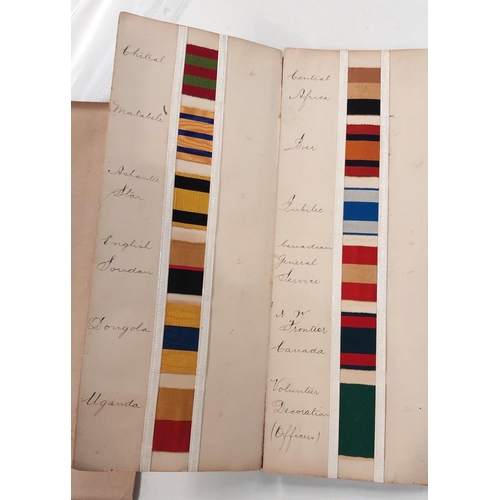 Chitral
Matabele
Ashantee
Star
English
Soudan
Dongola
Uganda
Central
Africa
Jubilee
Canadian
General
Service
N. W.
Frontier
Canada
Volunteer
Decoration
(Officers)